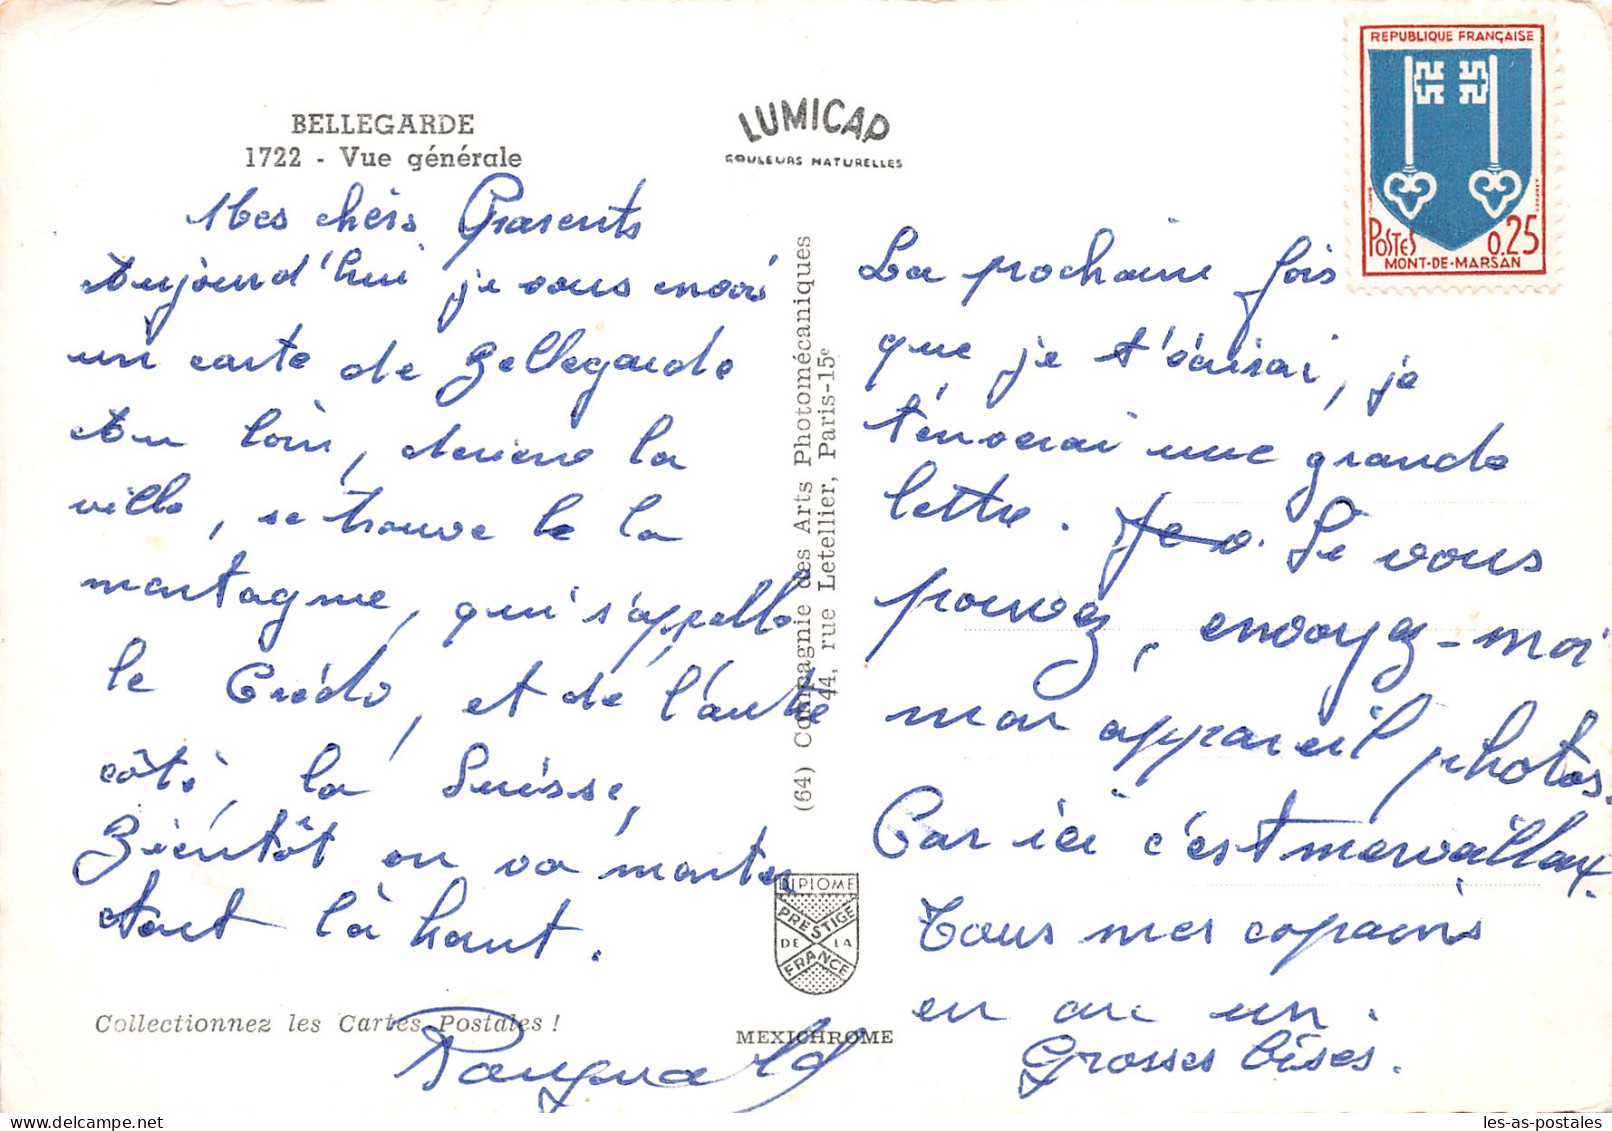 BELLEGARDE
1722 - Vue générale
LUMICAP
COULEURS NATURELLES
REPUBLIQUE FRANÇAISE
POSTES 0,25
MONT-DE-MARSAN
Mes chérs Parents
Aujourd'hui je vous envoi
un carte de Bellegarde
Au loin, derière la
ville, se trouve le la
montagne, qui s'appelle
le Crédo, et de l'autre
côté, la Suisse,
Biéntôt on va monter
tout là haut.
La prochaine fois
que je t'écrirai, je
t'énverai une grande
lettre. Je v. Si vous
pouvez, envoyez-moi
mon appareil photos.
Car ici c'est mervaillaux.
Tous mes copains
en on un.
Grosses bises.
(64) Compagnie des Arts Photomécaniques
44, rue Letellier, Paris-15e
DIPLOME
PRESTIGE
DE LA
FRANCE
Collectionnez les Cartes Postales !
MEXICHROME
les-as-postales.com